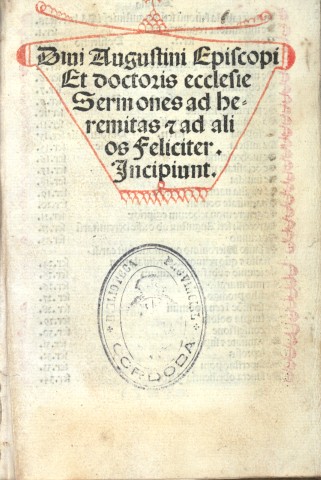 Diui Augustini Episcopi
Et doctoris ecclesie
Sermones ad he-
remitas ⁊ ad ali
os Feliciter.
Incipiunt.
BIBLIOTECA PROVINCIAL
CORDOBA